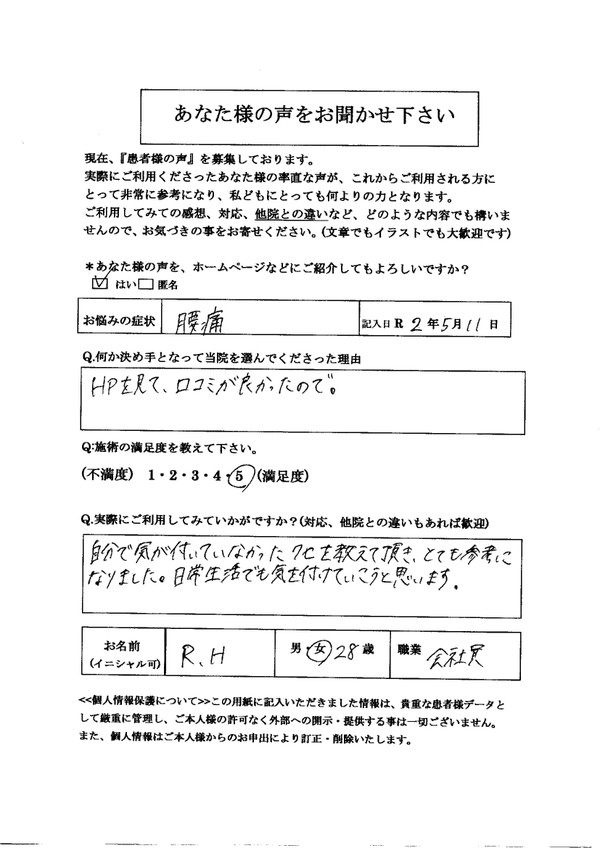 あなた様の声をお聞かせ下さい
現在、『患者様の声』を募集しております。
実際にご利用くださったあなた様の率直な声が、これからご利用される方に
とって非常に参考になり、私どもにとっても何よりの力となります。
ご利用してみての感想、対応、他院との違いなど、どのような内容でも構いま
せんので、お気づきの事をお寄せください。(文章でもイラストでも大歓迎です)
*あなた様の声を、ホームページなどにご紹介してもよろしいですか?
☑ はい □ 匿名
お悩みの症状 腰痛 記入日 R 2 年 5 月 11 日
Q.何か決め手となって当院を選んでくださった理由
HPを見て、口コミが良かったので。
Q:施術の満足度を教えて下さい。
(不満度) 1・2・3・4・5 (満足度)
Q.実際にご利用してみていかがですか?(対応、他院との違いもあれば歓迎)
自分で気が付いていなかったクセを教えて頂き、とても参考に
なりました。日常生活でも気を付けていこうと思います。
お名前 (イニシャル可) R.H 男・女 28 歳 職業 会社員
<<個人情報保護について>>この用紙に記入いただきました情報は、貴重な患者様データと
して厳重に管理し、ご本人様の許可なく外部への開示・提供する事は一切ございません。
また、個人情報はご本人様からのお申出により訂正・削除いたします。